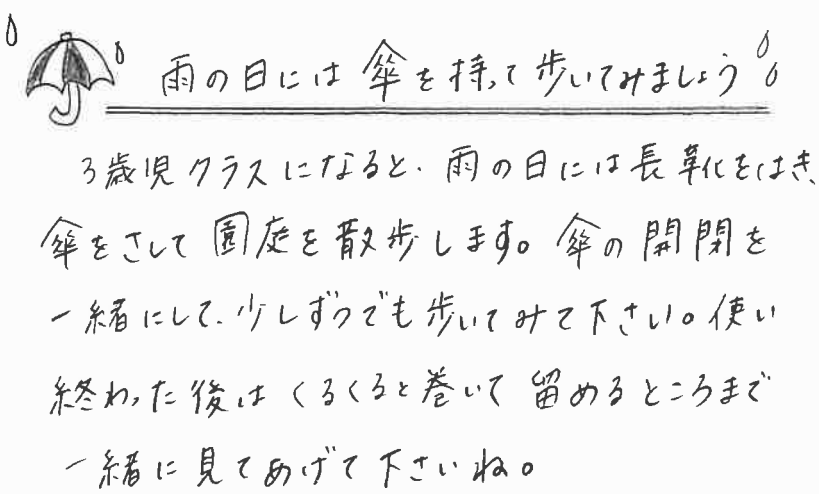 雨の日には傘を持って歩いてみましょう
3歳児クラスになると、雨の日には長靴をはき、
傘をさして園庭を散歩します。傘の開閉を
一緒にして、少しずつでも歩いてみて下さい。使い
終わった後はくるくると巻いて留めるところまで
一緒に見てあげて下さいね。